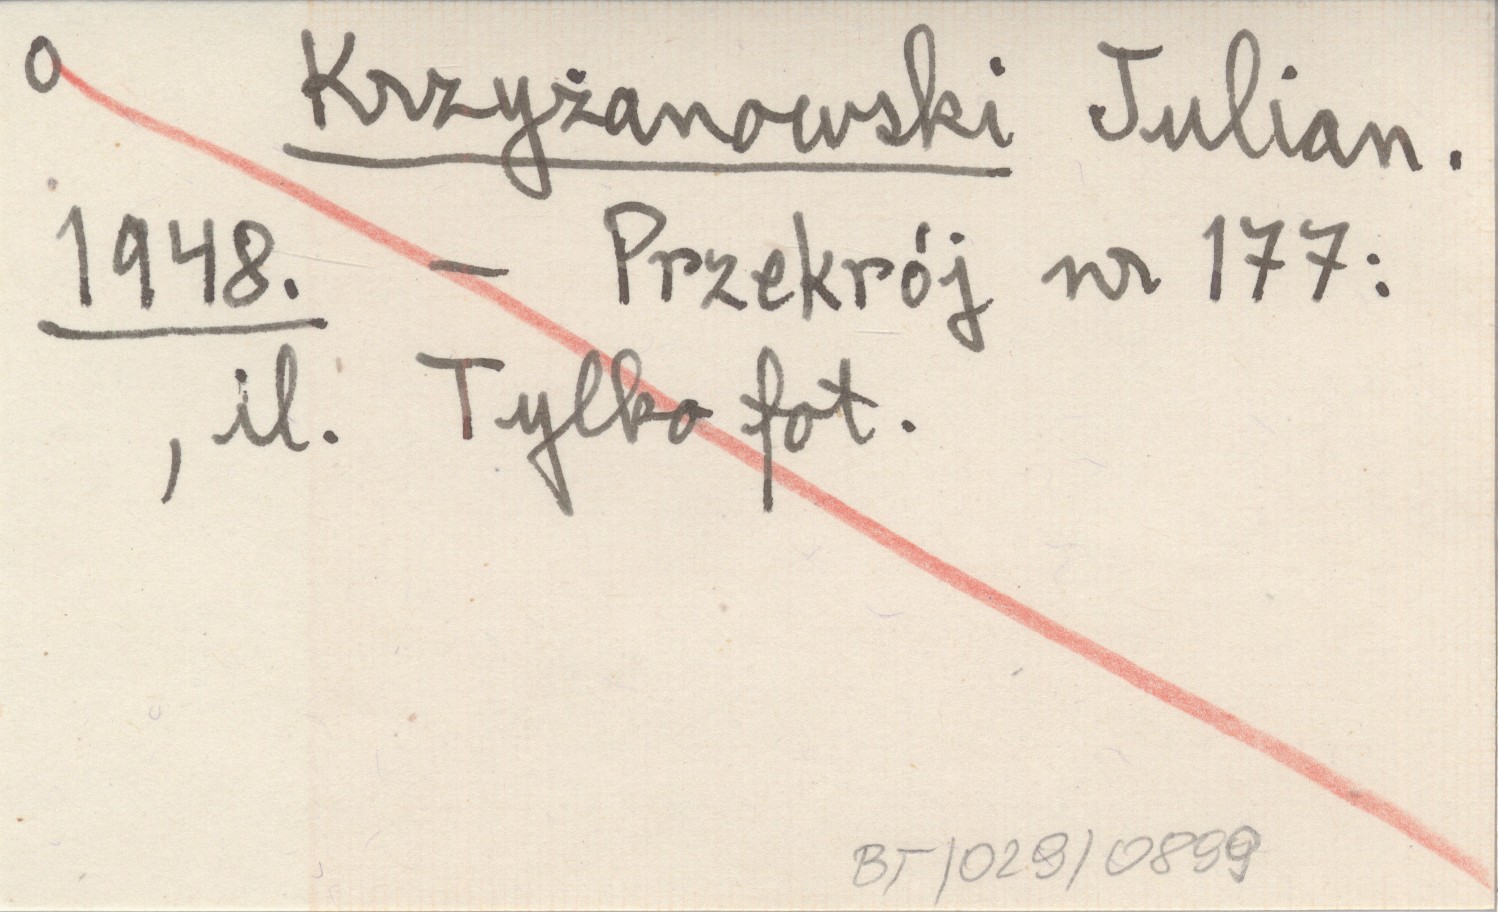 O Krzyżanowski Julian.
1948. – Przekrój nr 177:
, il. Tylko fot.
BT/029/0899